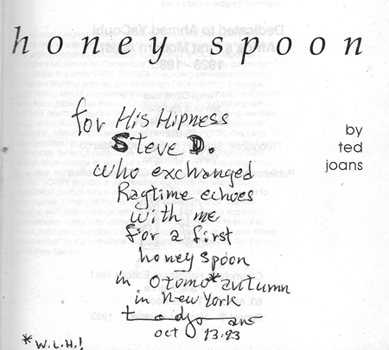 honey spoon
by
ted
joans
for His Hipness
Steve D.
who exchanged
Ragtime echoes
with me
for a first
honey spoon
in otomo* autumn
in New York
ted joans
oct 13·93
*W.L.H.!